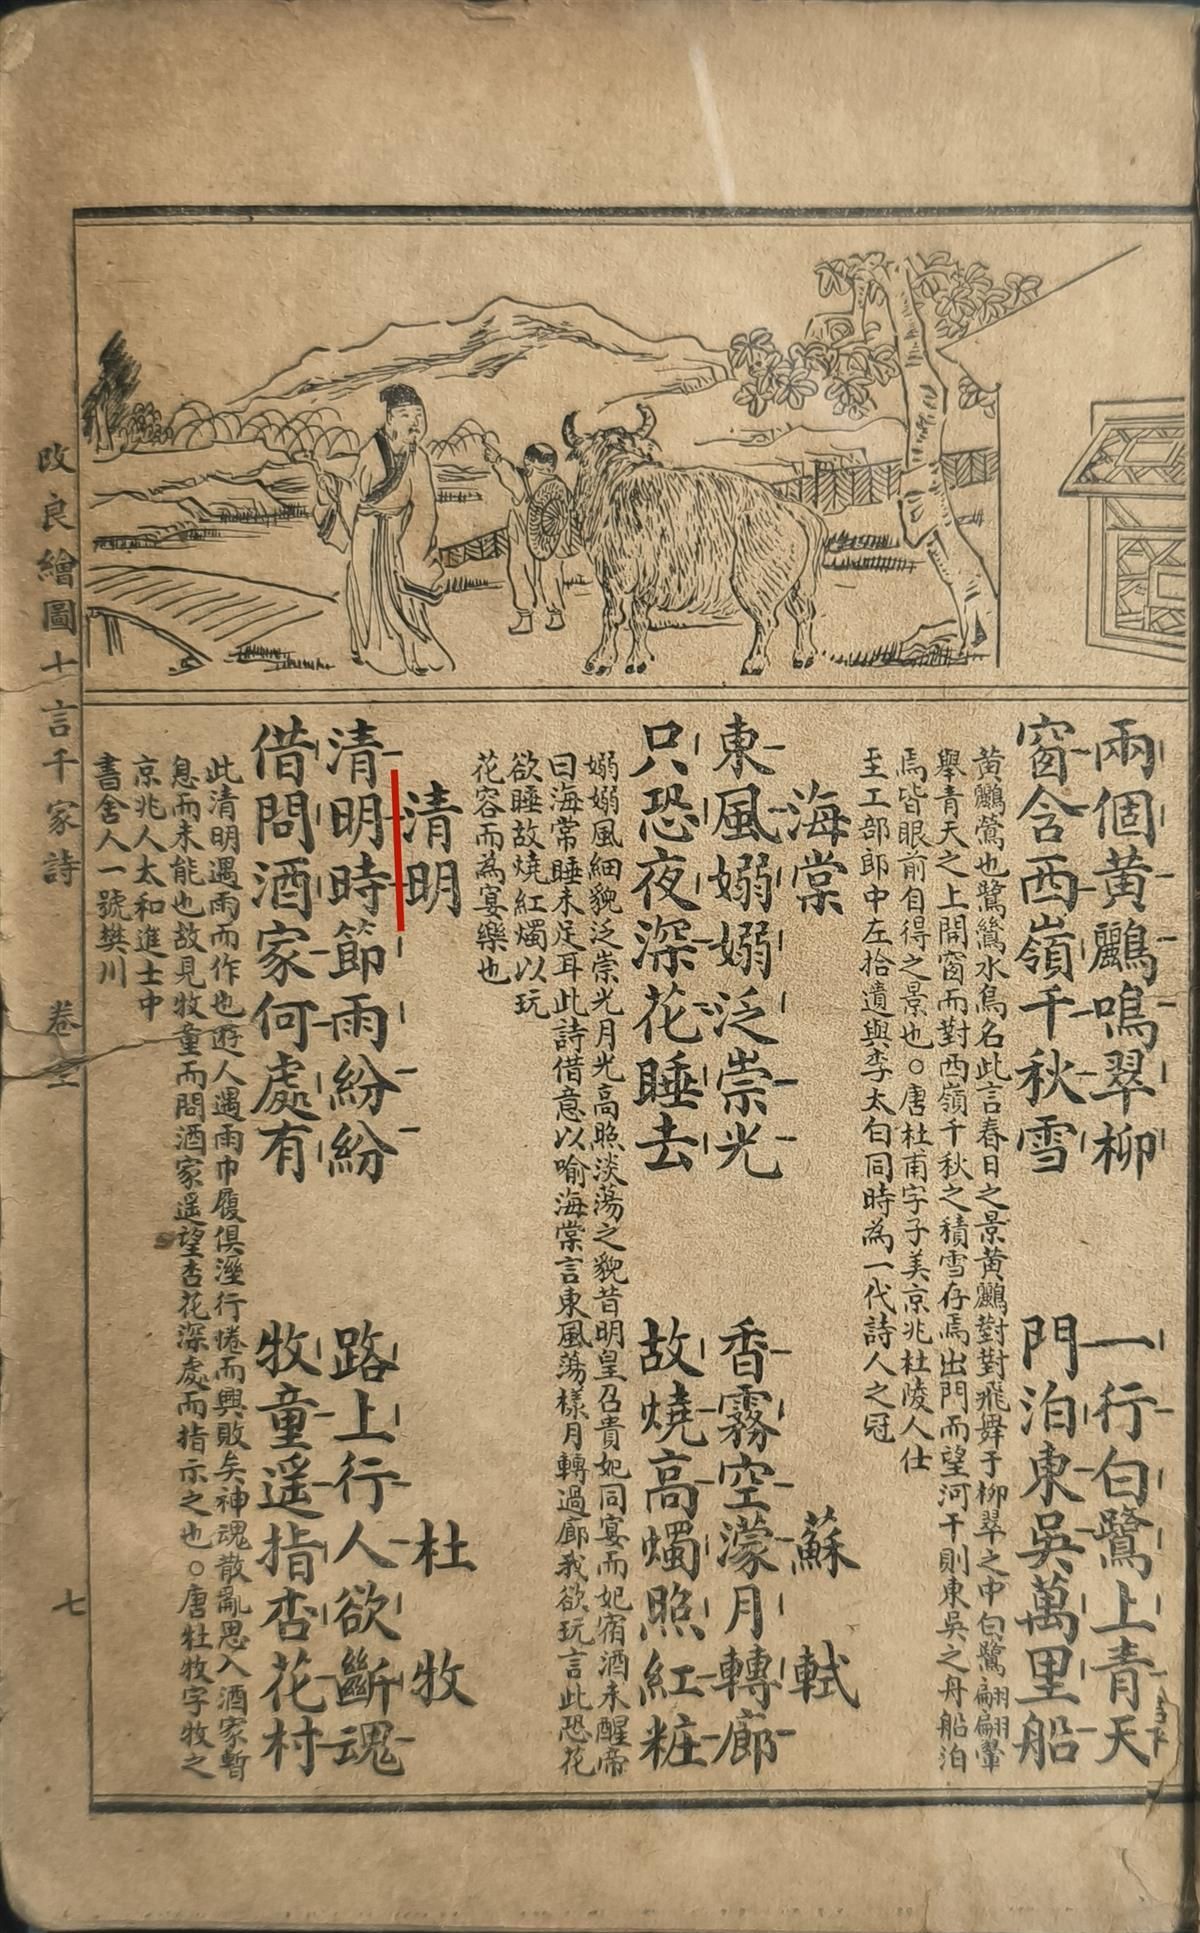 兩個黃鸝鳴翠柳 一行白鷺上青天
窗含西嶺千秋雪 門泊東吳萬里船
黃鸝鶯也鷺鷥水鳥名此言春日之景黃鸝對對飛舞于柳翠之中白鷺翩翩翬
舉青天之上開窗而對西嶺千秋之積雪存焉出門而望河干則東吳之舟船泊
焉皆眼前自得之景也○唐杜甫字子美京兆杜陵人仕
至工部郎中左拾遺與李太白同時為一代詩人之冠
海棠 蘇軾
東風嫋嫋泛崇光 香霧空濛月轉廊
只恐夜深花睡去 故燒高燭照紅粧
嫋嫋風細貌泛崇光月光高照淡蕩之貌昔明皇召貴妃同宴而妃宿酒未醒帝
曰海常睡未足耳此詩借意以喻海棠言東風蕩樣月轉過廊我欲玩言此恐花
欲睡故燒紅燭以玩
花容而為宴樂也
清明 杜牧
清明時節雨紛紛 路上行人欲斷魂
借問酒家何處有 牧童遥指杏花村
此清明遇雨而作也遊人遇雨巾履俱溼行倦而興敗矣神魂散亂思入酒家暫
息而未能也故見牧童而問酒家遥望杏花深處而指示之也○唐杜牧字牧之
京兆人太和進士中
書舍人一號樊川
改良繪圖十言千家詩 卷 七